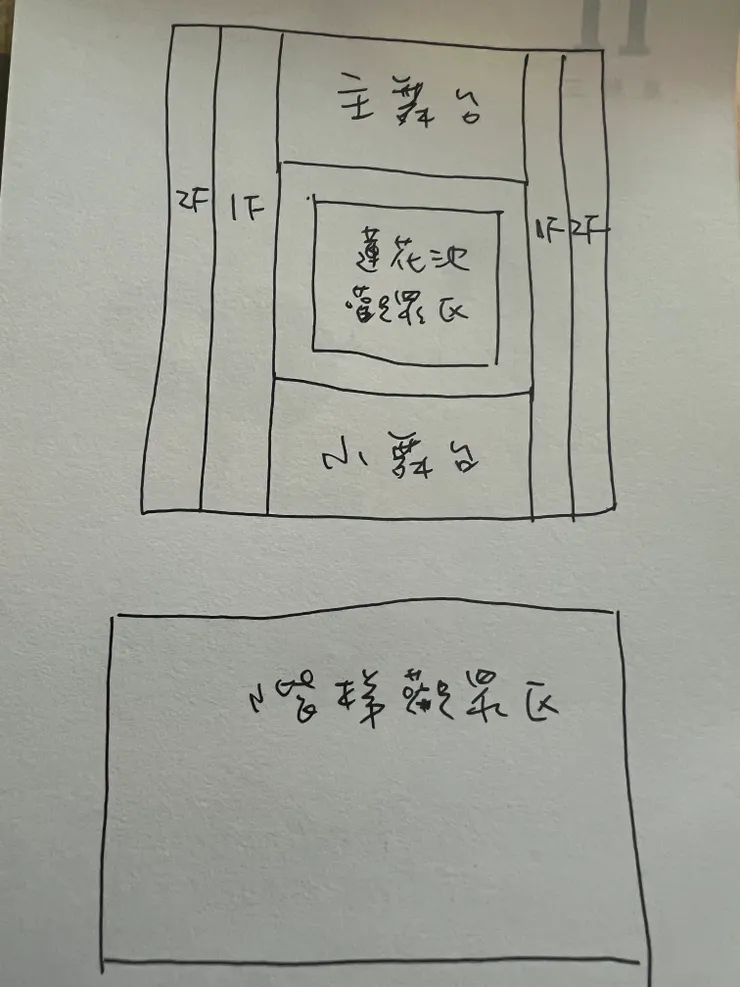 主舞台
2F 1F 1F 2F
蓮花池
觀眾区
小舞台
階梯觀眾区